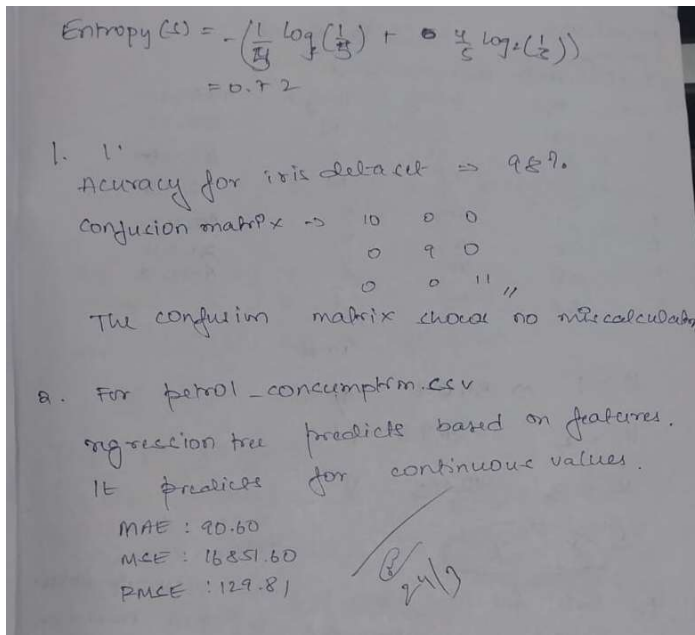 Entropy (S) = -(1/5 log₂(1/5) + 4/5 log₂(1/5))
= 0.72
1. 1.
Acuracy for iris dataset => 98%.
Confusion matrix -> 10 0 0
0 9 0
0 0 11 ,,
The confusion matrix shows no miscalculation
2. For petrol_consumption.csv
regression tree predicts based on features.
It predicts for continuous values.
MAE : 90.60
MSE : 16851.60
RMSE : 129.81
24/3